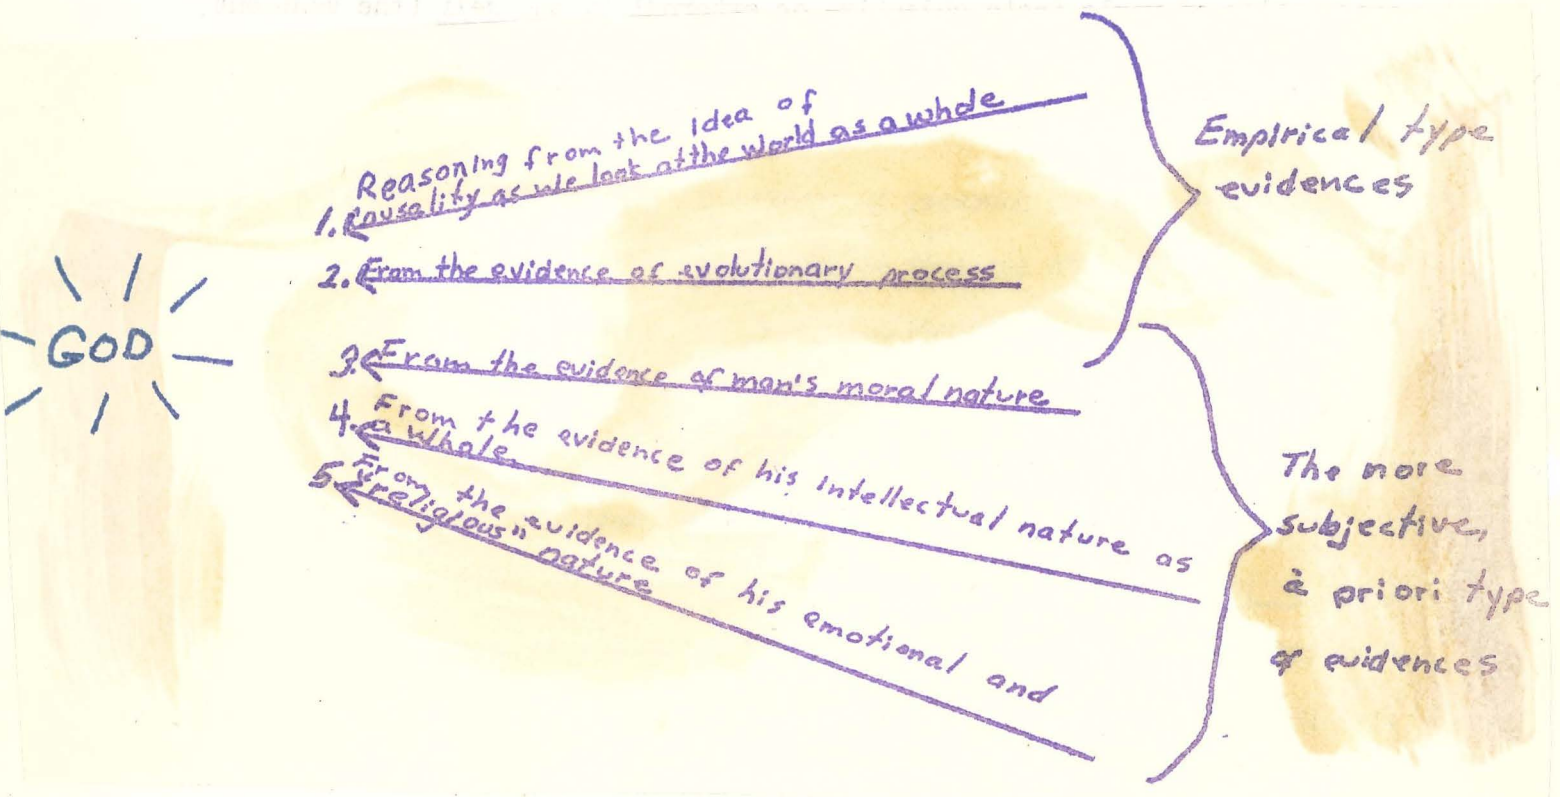 GOD
1. Reasoning from the idea of
causality as we look at the world as a whole
2. From the evidence of evolutionary process
3. From the evidence of man's moral nature
4. From the evidence of his intellectual nature as
a whole.
5 From the evidence of his emotional and
"religious" nature
Empirical type
evidences
The more
subjective,
à priori type
of evidences